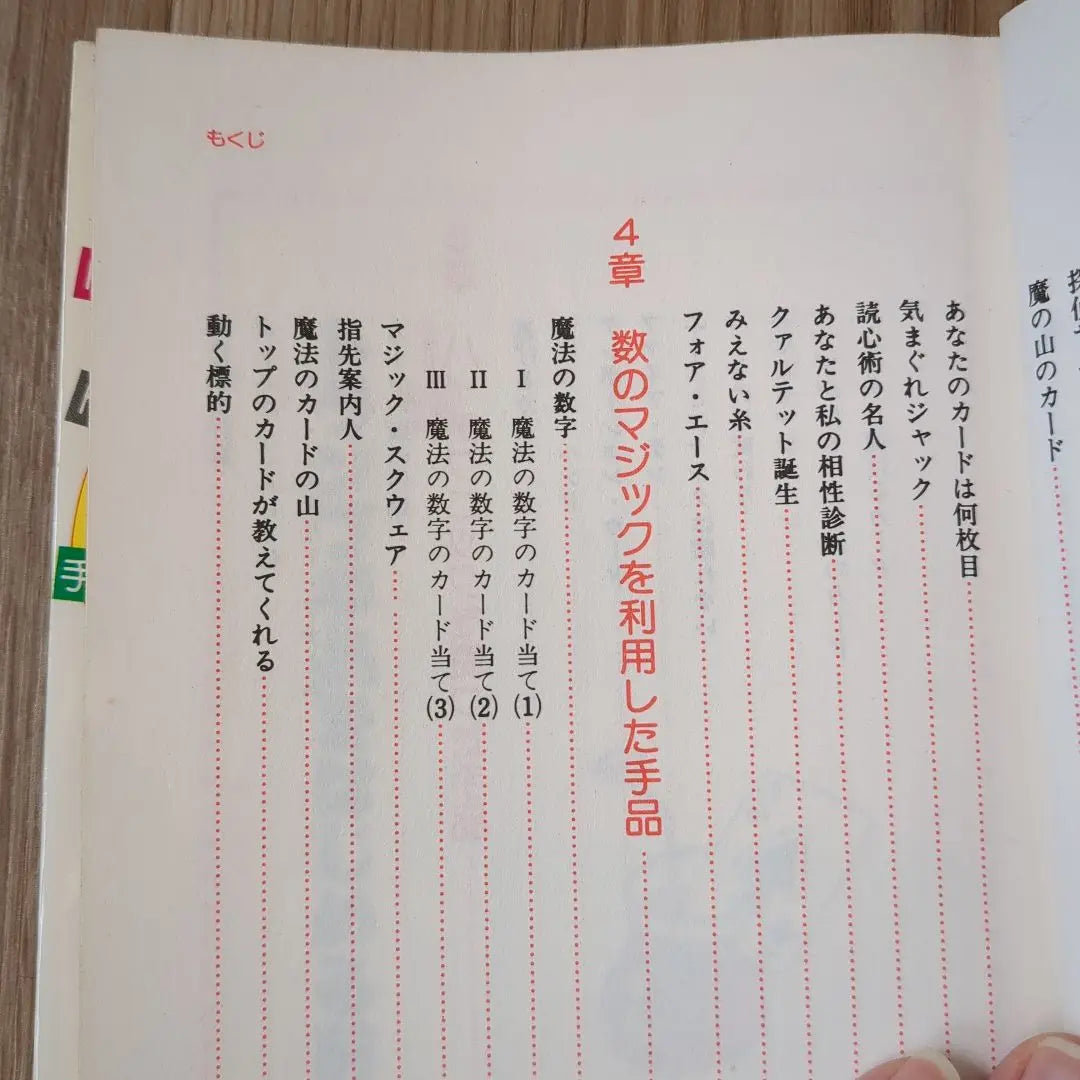 もくじ
魔の山のカード
あなたのカードは何枚目
気まぐれジャック
読心術の名人
あなたと私の相性診断
クァルテット誕生
みえない糸
フォア・エース
4章 数のマジックを利用した手品
魔法の数字
I 魔法の数字のカード当て(1)
II 魔法の数字のカード当て(2)
III 魔法の数字のカード当て(3)
マジック・スクウェア
指先案内人
魔法のカードの山
トップのカードが教えてくれる
動く標的
手